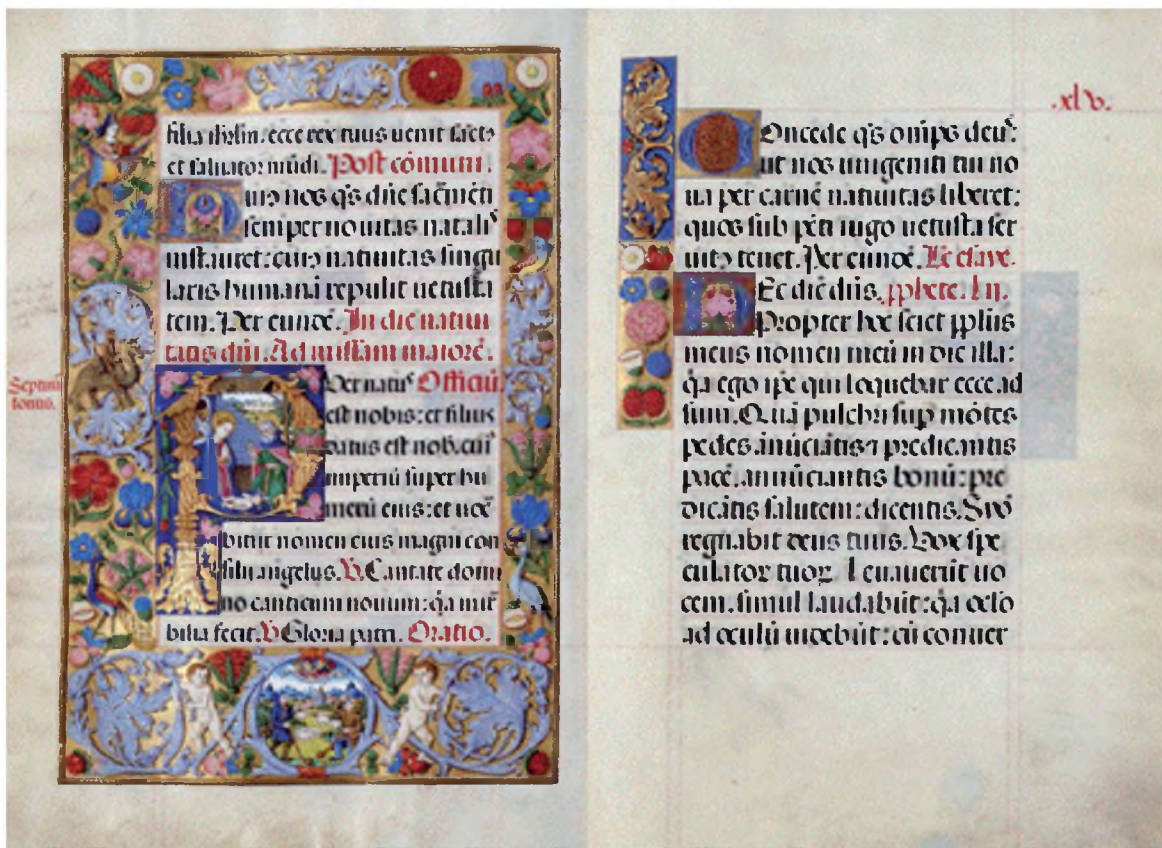 filia thſin. ecce rex tuus uenit ſāctꝰ
et ſaluator mūdi. Poſt cōmuni.
uiꝰ nos qs dñe ſacr̄mēti
ſemper nouitas natalꝰ
inſtauret: cuiꝰ natiuitas ſingu
laris humanā repulit uetuſta
tem. Per eundē. In die natiui
tatis dñi. Ad miſſam maiorē.
Septimi
tonus.
Puer natꝰ Officiū
eſt nobis: et filius
datus eſt nob. cuiꝰ
imperiū ſuper hu
merū eius: et uoc̄
bitur nomen eius magni con
ſilii angelus. V. Cantate domi
no canticum nouum: q̄a mir̄
bilia fecit. V. Gloria patri. Oratio.
.xlv.
Concede qs om̄ps deuſ:
ut nos unigeniti tui no
ua per carnē natiuitas liberet:
quos ſub pcti iugo uetuſta ſer
uitꝰ tenet. Per eundē. Le eſaye.
Hec dic̄ dñs. pphete. Lii.
Propter hoc ſciet pplus
meus nomen meū in die illa:
q̄a ego ipe qui loquebar ecce ad
ſum. Quā pulchri ſup mōtes
pedes. ānūciātis ⁊ predicantis
pacē. annūciantis bonū: pre
dicātis ſalutem: dicentis. Syō
regnabit deus tuus. Vox ſpe
culatorꝝ tuoꝝ. leuauerūt uo
cem. ſimul laudabūt: q̄a oc̄lo
ad oculū uidebūt: cū conuer